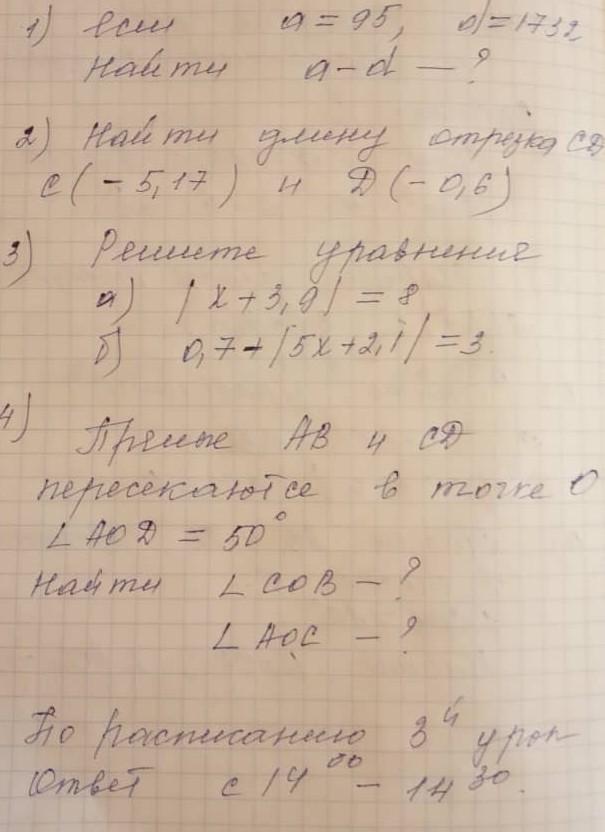 1) если a = 95, d = 1732
Найти a - d — ?
2) Найти длину отрезка CD
C (-5,17) и D (-0,6)
3) Решите уравнения
а) |x + 3,9| = 8
б) 0,7 + |5x + 2,1| = 3.
4) Прямые AB и CD
пересекаются в точке O
∠AOD = 50°
Найти ∠COB — ?
∠AOC — ?
По расписанию 3й урок
Ответ с 14⁰⁰ - 14³⁰.